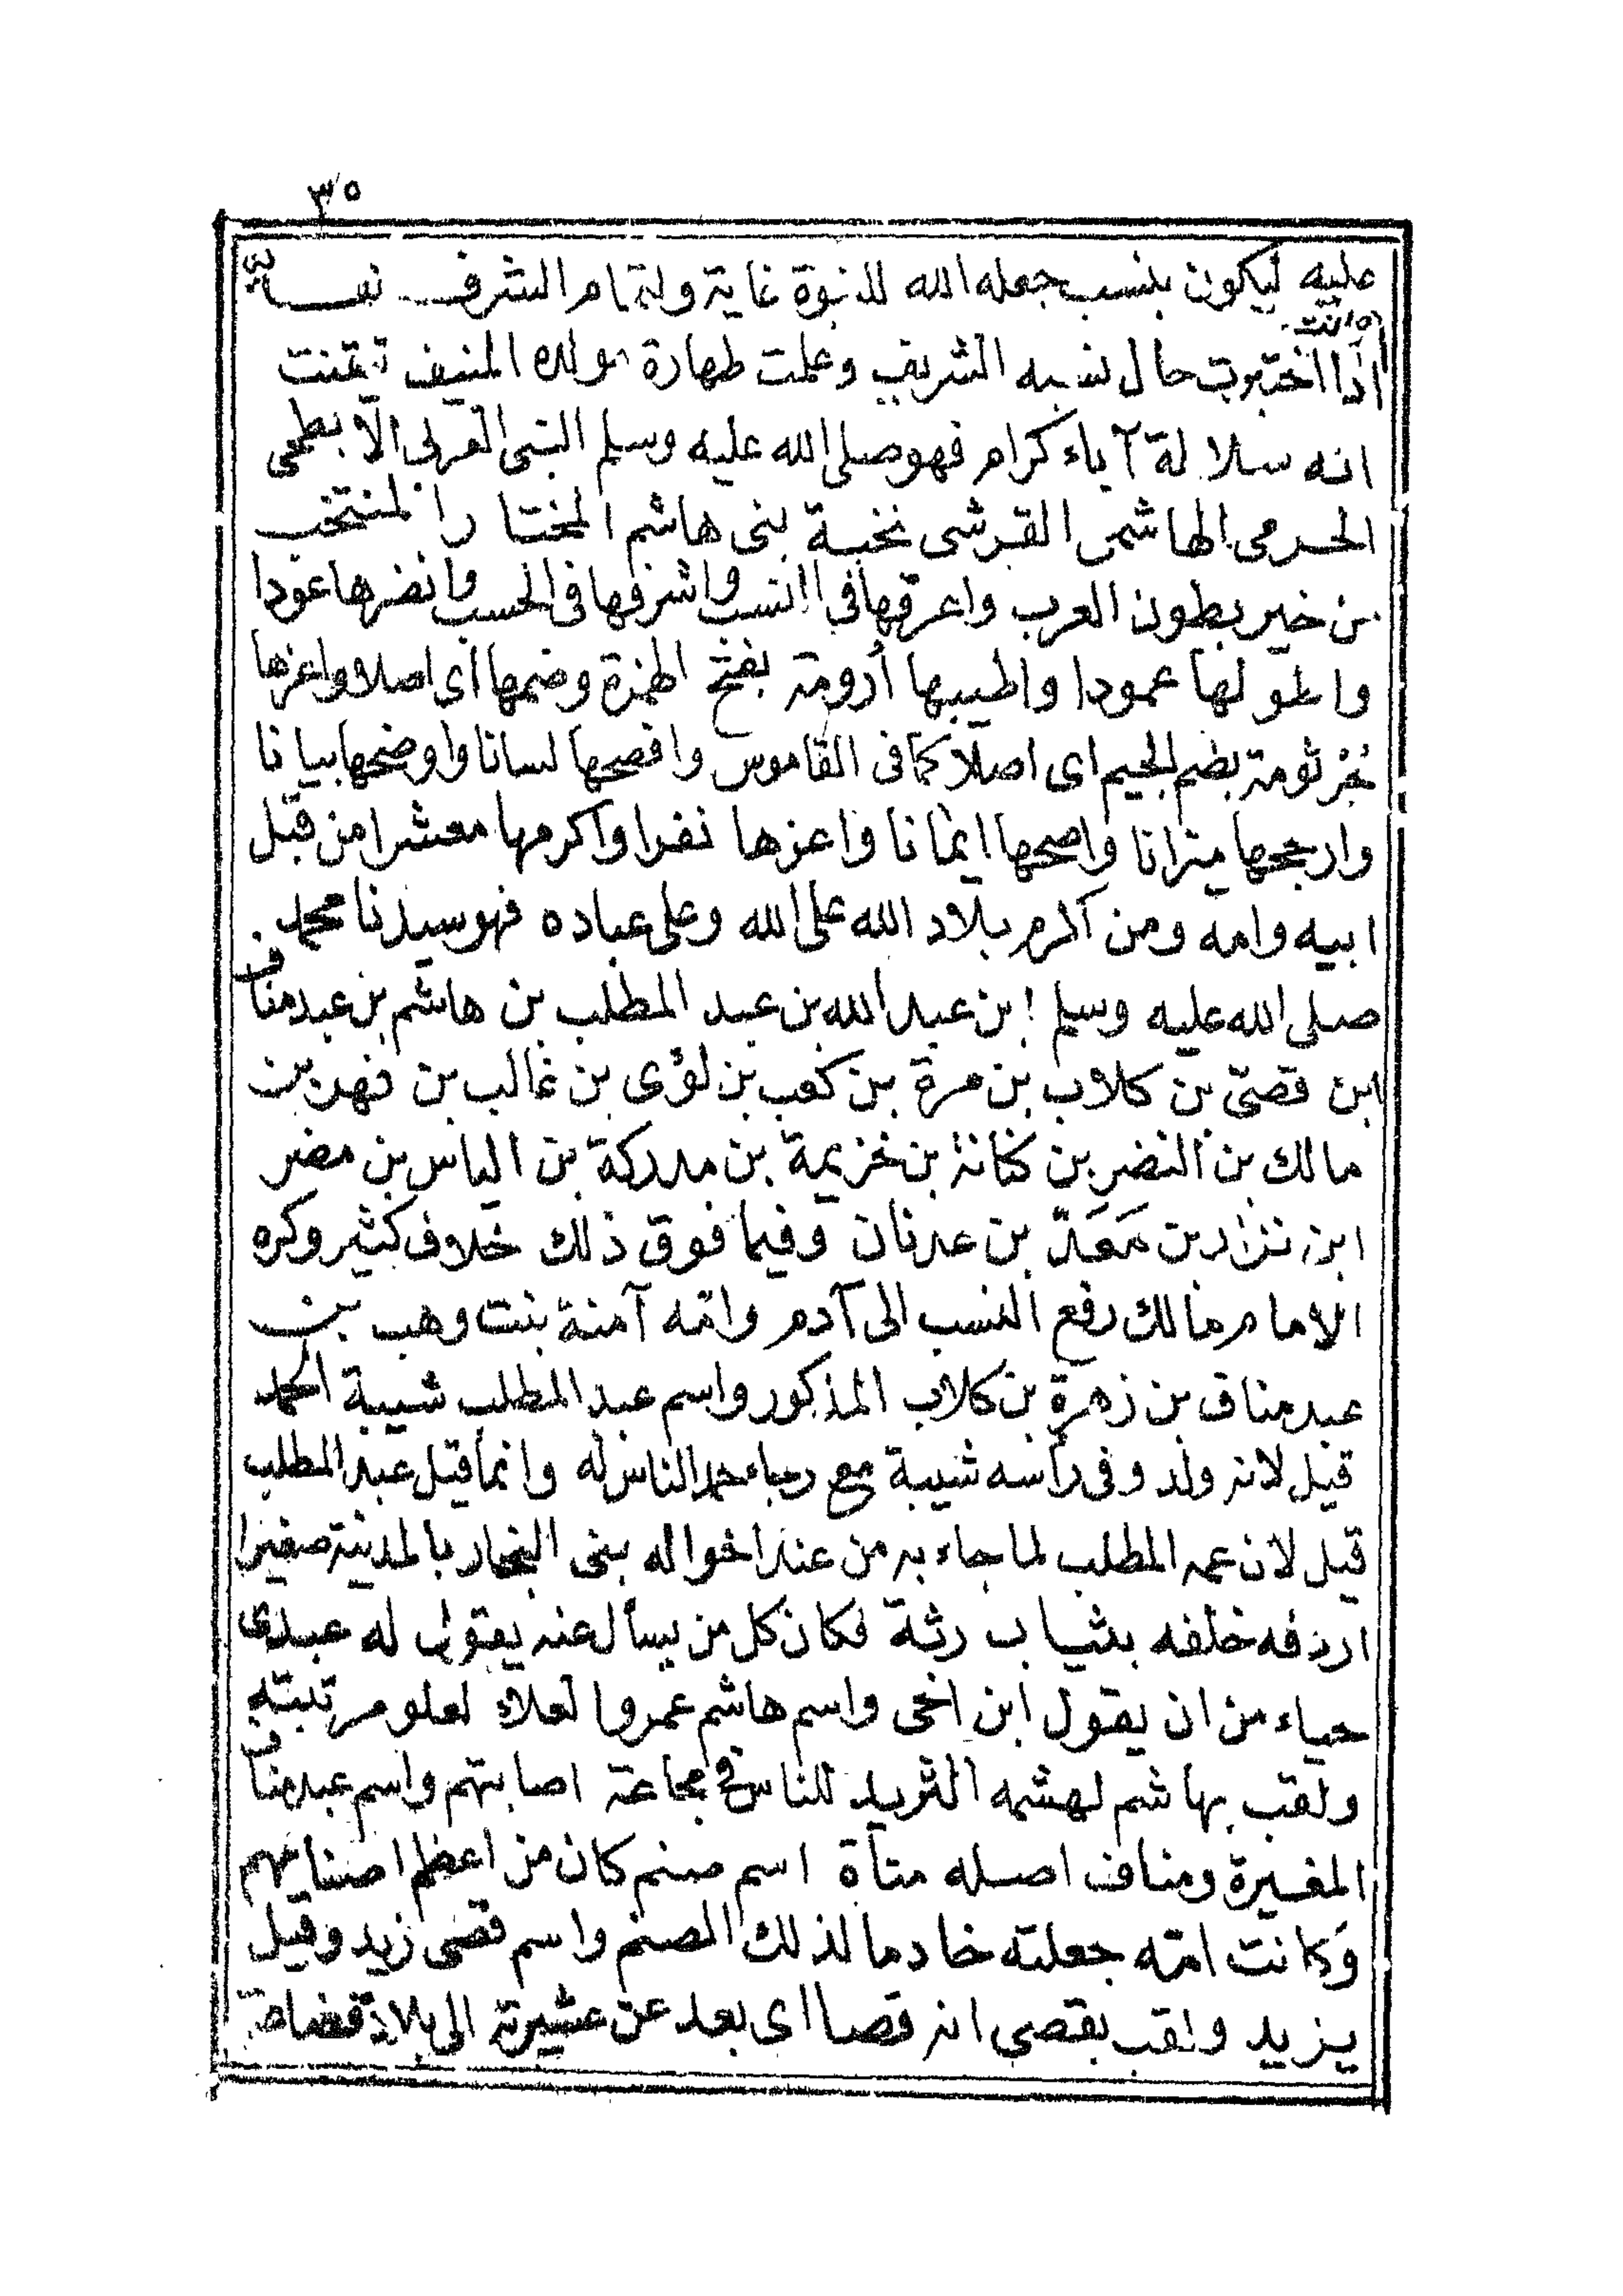 ٣٥
عليه ليكون بنسب جعله الله للنبوة غاية ولتمام الشرف نهاية
وانت
اذا اختبرت حال نسبه الشريف وعلمت طهارة مولده المنيف تيقنت
انه سلالة آباء كرام فهو صلى الله عليه وسلم النبى العربى الابطحى
الحرمى الهاشمى القرشى نخبة بنى هاشم المختار المنتخب
من خير بطون العرب واعرقها فى النسب واشرفها فى الحسب وانضرها عودا
واطولها عمودا واطيبها أرومة بفتح الهمزة وضمها أى اصلا واعزها
جُرْثومة بضم الجيم اى اصلا كما فى القاموس وافصحها لسانا واوضحها بيانا
وارجحها ميزانا واصحها ايمانا واعزها نفرا واكرمها معشرا من قبل
ابيه وامه ومن اكرم بلاد الله على الله وعلى عباده فهو سيدنا محمد
صلى الله عليه وسلم ابن عبد الله بن عبد المطلب بن هاشم بن عبد مناف
ابن قصىّ بن كلاب بن مرة بن كعب بن لؤى بن غالب بن فهر بن
مالك بن النضر بن كنانة بن خزيمة بن مدركة بن الياس بن مضر
ابن نزار بن مَعَدّ بن عدنان وفيما فوق ذلك خلاف كثير وكره
الامام مالك رفع النسب الى آدم وامّه آمنة بنت وهب بن
عبد مناف بن زهرة بن كلاب المذكور واسم عبد المطلب شيبة الحمد
قيل لانه ولد وفى رأسه شيبة مع رجاء حمد الناس له وانما قيل عبد المطلب
قيل لان عمه المطلب لما جاء به من عند اخواله بنى النجار بالمدينة صغيرا
اردفه خلفه بثياب رثة فكان كل من يسأل عنه يقول له عبدى
حياء من ان يقول ابن اخى واسم هاشم عمرو العلاء لعلو مرتبته
ولقب بهاشم لهشمه الثريد للناس فى مجاعة اصابتهم واسم عبد مناف
المغيرة ومناف اصله مناة اسم صنم كان من اعظم اصنامهم
وَكانت امّه جعلته خادما لذلك الصنم واسم قصى زيد وقيل
يزيد ولقب بقصى انه قصا اى بعد عن عشيرته الى بلاد قضاعة